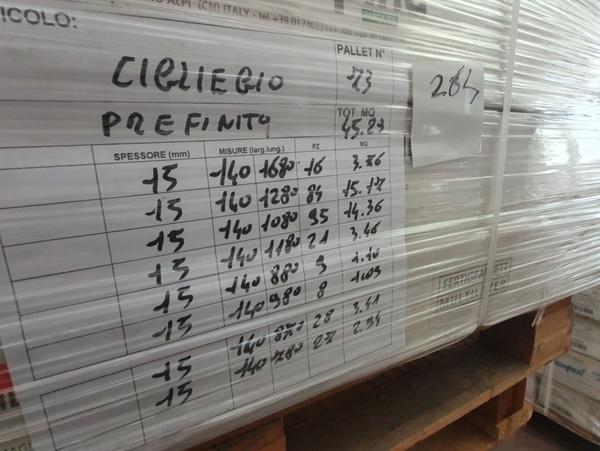 ALPI (CN) ITALY - tel +39 0174
ICOLO:
CIGLIEGIO
PREFINITO
PALLET N°
73
TOT. MQ
45.29
264
SPESSORE (mm) MISURE (larg.lung.) PZ MQ
15 140 1680 16 3.76
15 140 1280 84 15.17
15 140 1080 95 14.36
15 140 1180 21 3.46
15 140 880 9 1.10
15 140 980 8 1.09
15 140 870 28 3.41
15 140 780 27 2.94